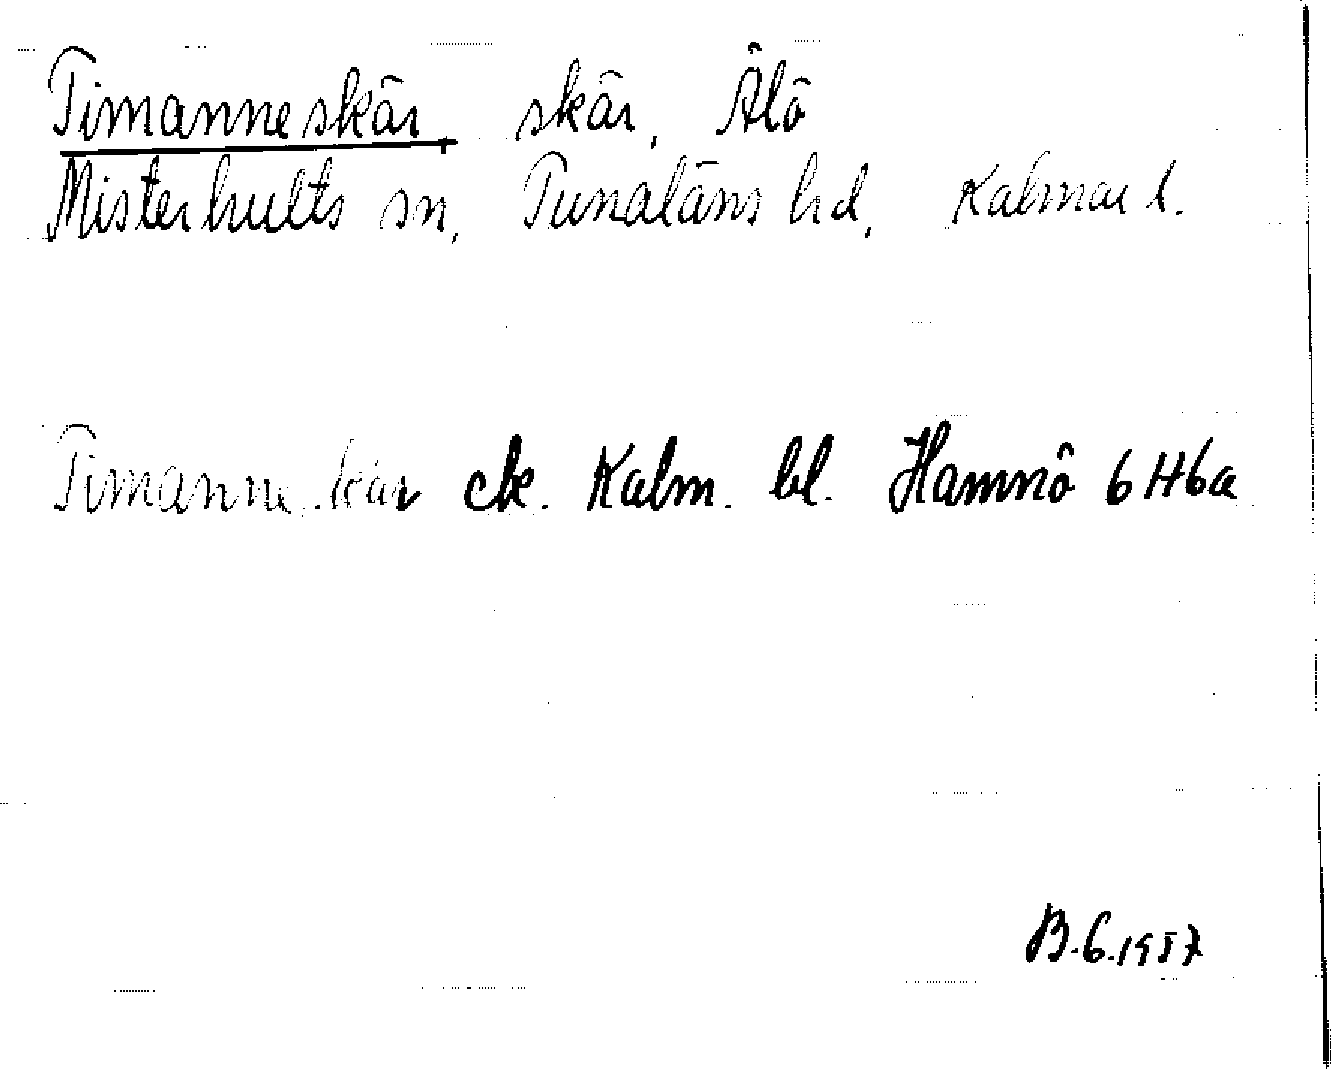 Timanneskär, skär, Älö
Misterhults sn, Tunaläns hd, Kalmar l.
Timanneskär ek. Kalm. bl. Hamnö 6H6a
B.G. 1957